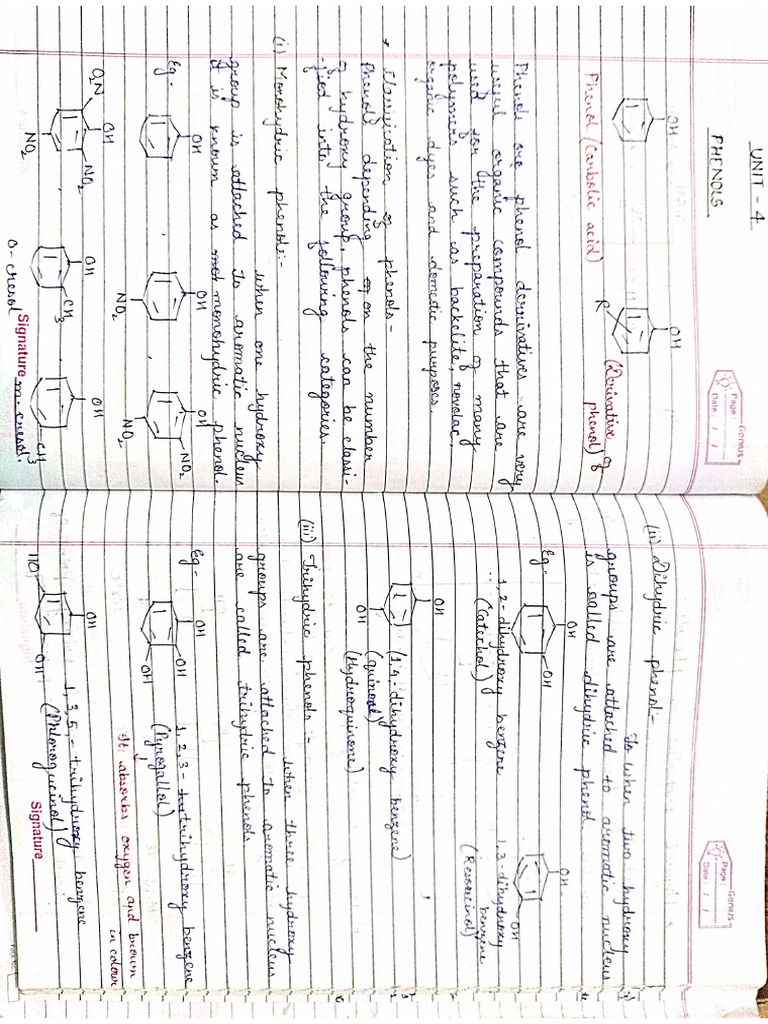 Genius
Page:
Date: / /
UNIT - 4
PHENOLS
OH
Phenol/(Carbolic acid)
OH
R
(Derivative of
phenol)
Phenols are phenol derrivatives are very
useful organic compounds that are
used for the preparation of many
polymers such as backelite, novolac,
organic dyes and domestic purposes.
* Classification of phenols -
Phenols depending of on the number
of hydroxy group, phenols can be classi-
-fied into the following categories.
(i) Monohydric phenol:-
when one hydroxy
group is attached to aromatic nucleus
it is known as mot monohydric phenol.
Eg-
OH
,
OH
NO2
,
OH
NO2
NO2
O2N
OH
NO2
NO2
,
OH
CH3
o-cresol
OH
CH3
m-cresol.
Signature
Genius
Page:
Date: / /
(ii) Dihydric phenol:-
To when two hydroxy
groups are attached to aromatic nucleus
is called dihydric phenol.
Eg-
OH
OH
1,2-dihydroxy benzene
(Catechol)
OH
OH
1,3-dihydroxy
benzene
(Resorcinol)
OH
OH
(1,4-dihydroxy benzene)
(quinone)
(Hydroquinone)
(iii) Trihydric phenols:-
when three hydroxy
groups are attached to aromatic nucleus
are called trihydric phenols
Eg-
OH
OH
OH
1,2,3-trihydroxy benzene
(Pyrogallol)
It absorbs oxygen and brown
in colour
OH
HO
OH
1,3,5,-trihydroxy benzene
(Phloroglucinol)
Signature